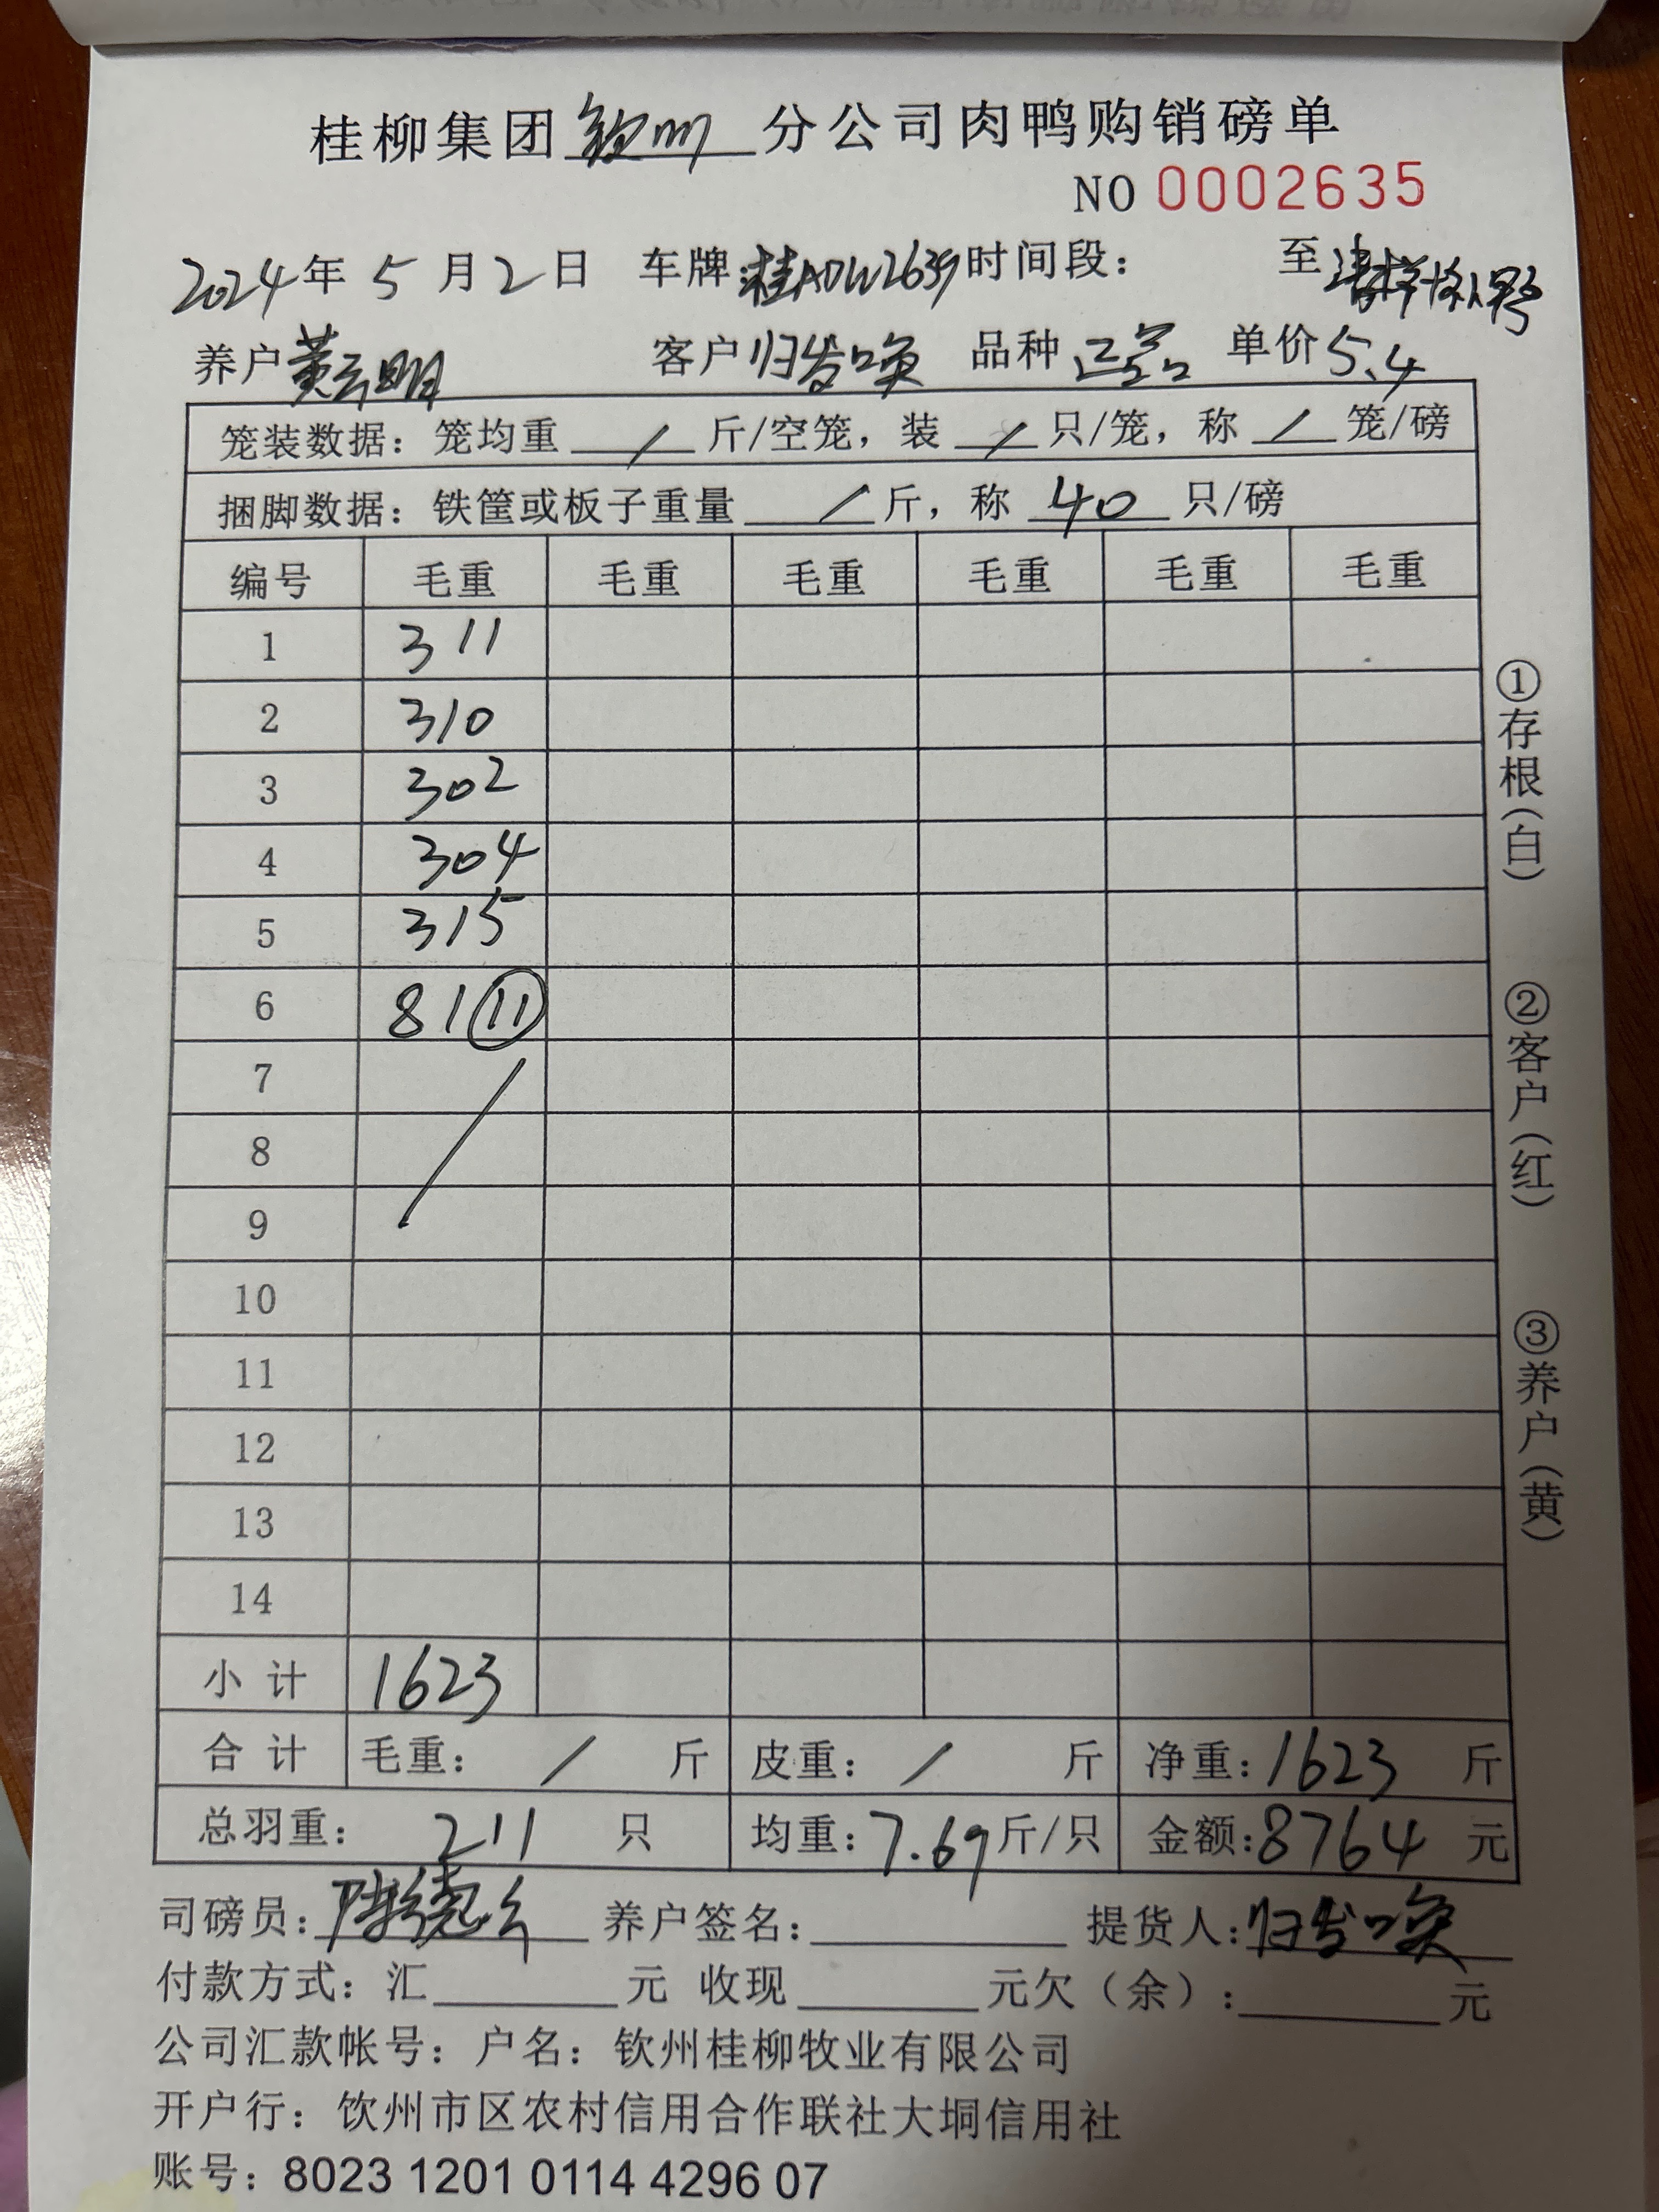 桂柳集团钦州分公司肉鸭购销磅单
NO 0002635
2024年5月2日 车牌:桂A0W2639时间段： 至
养户黄云明 客户归发唤 品种 单价5.4
笼装数据：笼均重 / 斤/空笼，装 / 只/笼，称 / 笼/磅
捆脚数据：铁筐或板子重量 / 斤，称 40 只/磅
编号 毛重 毛重 毛重 毛重 毛重 毛重
1 311
2 310
3 302
4 304
5 315
6 81 ⑪
7
8
9
10
11
12
13
14
小计 1623
合计 毛重： / 斤 皮重： / 斤 净重：1623 斤
总羽重： 211 只 均重：7.69斤/只 金额:8764 元
司磅员： 养户签名： 提货人:归发唤
付款方式：汇 元 收现 元欠（余）: 元
公司汇款帐号：户名：钦州桂柳牧业有限公司
开户行：钦州市区农村信用合作联社大垌信用社
账号：8023 1201 0114 4296 07
①存根（白）
②客户（红）
③养户（黄）